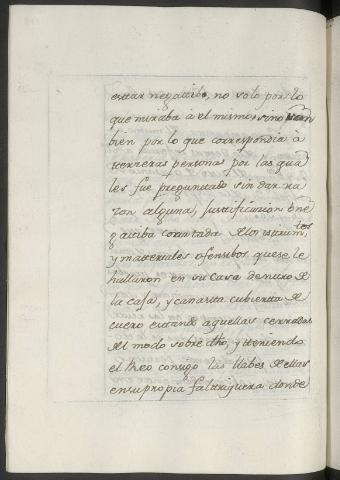 estar negattibo, no solo por lo
que miraba à el mismo, sino tam
bien por lo que correspondia à
terzeras personas por las qua
les fue preguntado sin dar ra
zon alguna, Justificazion ò ne
gattiba coartada de los instrumtos
y materiales ofensibos que se le
hallaron en su casa dentro de
la caja, y canasta cubierta de
cuero estando aquellas cerradas
del modo sobre dho, y teniendo
el Reo consigo las llabes de ellas
en su propia faltriquera donde